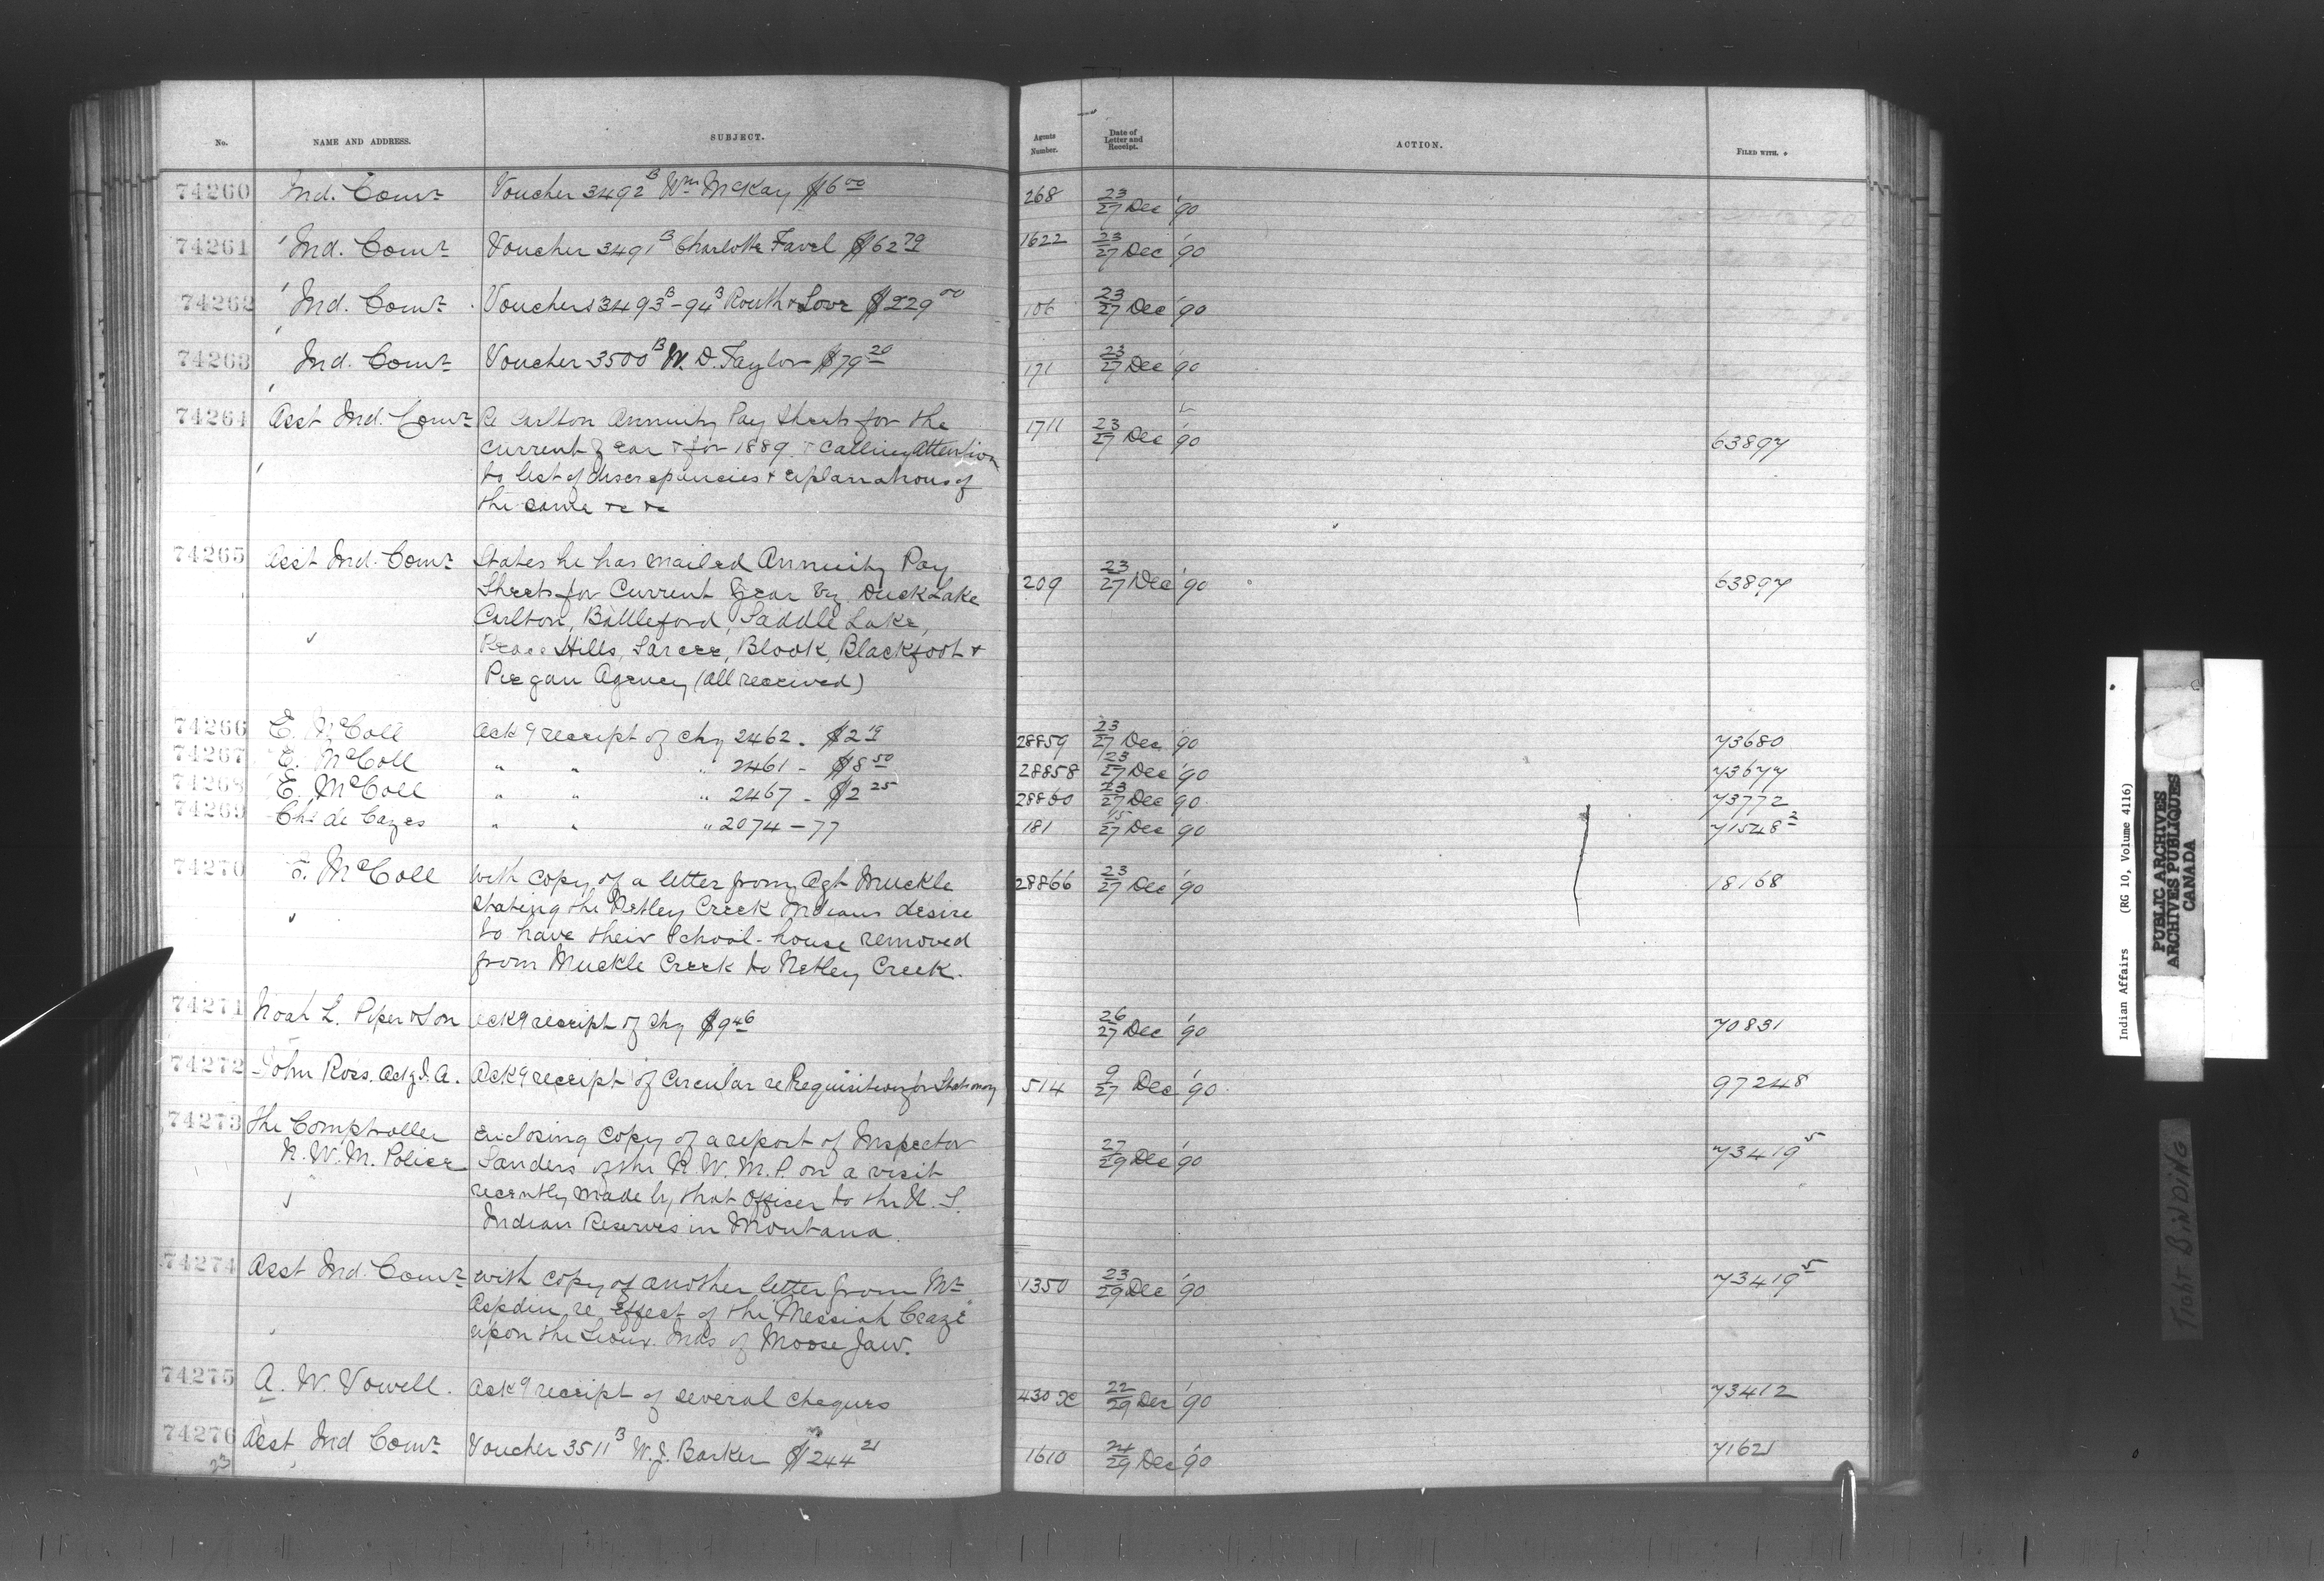 No. NAME AND ADDRESS. SUBJECT. Agents Number. Date of Letter and Receipt. ACTION. FILED WITH.
74260 Ind. Comr. Voucher 3492B Wm McKay $6.00 268 23/27 Dec '90
74261 Ind. Comr. Voucher 3491B Charlotte Favel $62.79 1622 23/27 Dec '90
74262 Ind. Comr. Vouchers 3493B-94B Routh & Love $229.00 106 23/27 Dec '90
74263 Ind. Comr. Voucher 3500B W. D. Taylor $79.20 171 23/27 Dec '90
74264 Asst Ind. Comr. Re Carlton Annuity Pay Sheets for the 1711 23/27 Dec '90 63897
current year & for 1889. & calling attention
to list of discrepancies & explanations of
the same &c &c
74265 Asst Ind. Comr. States he has mailed Annuity Pay 209 23/27 Dec '90 63897
Sheets for Current Year viz. Duck Lake
Carlton, Battleford, Saddle Lake,
Peace Hills, Sarcee, Blook, Blackfoot &
Piegan Agency (all received)
74266 E. McColl Ackg receipt of chq 2462. $2.19 28859 23/27 Dec '90 73680
74267 E. McColl " " " 2461 - $18.50 28858 23/27 Dec '90 73677
74268 E. McColl " " " 2467 - $2.25 28860 23/27 Dec '90 73772
74269 Chs de Cazes " " " 2074-77 181 15/27 Dec '90 71548²
74270 E. McColl with copy of a letter from Agt Muckle 28866 23/27 Dec '90 18168
stating the Netley Creek Indians desire
to have their School-house removed
from Muckle Creek to Netley Creek.
74271 Noah L. Piper & Son ackg receipt of chq $9.46 26/27 Dec '90 70831
74272 John Ross. Actg I. A. Ackg receipt of Circular re Requisition for Stationery 514 9/27 Dec '90 97248
74273 The Comptroller Enclosing copy of a report of Inspector 27/29 Dec '90 73419⁵
N. W. M. Police Sanders of the N. W. M. P. on a visit
recently made by that Officer to the U. S.
Indian Reserves in Montana.
74274 Asst Ind. Comr. with copy of another letter from Mr 1350 23/29 Dec '90 73419⁵
Aspdin re effect of the "Messiah Craze"
upon the Sioux Inds of Moose Jaw.
74275 A. W. Vowell. Ackg receipt of several cheques 430 X 22/29 Dec '90 73412
74276 Asst Ind Comr. Voucher 3511B W. J. Barker $244.21 1610 24/29 Dec '90 71621
23
Indian Affairs (RG 10, Volume 4116)
PUBLIC ARCHIVES
ARCHIVES PUBLIQUES
CANADA
TIGHT BINDING